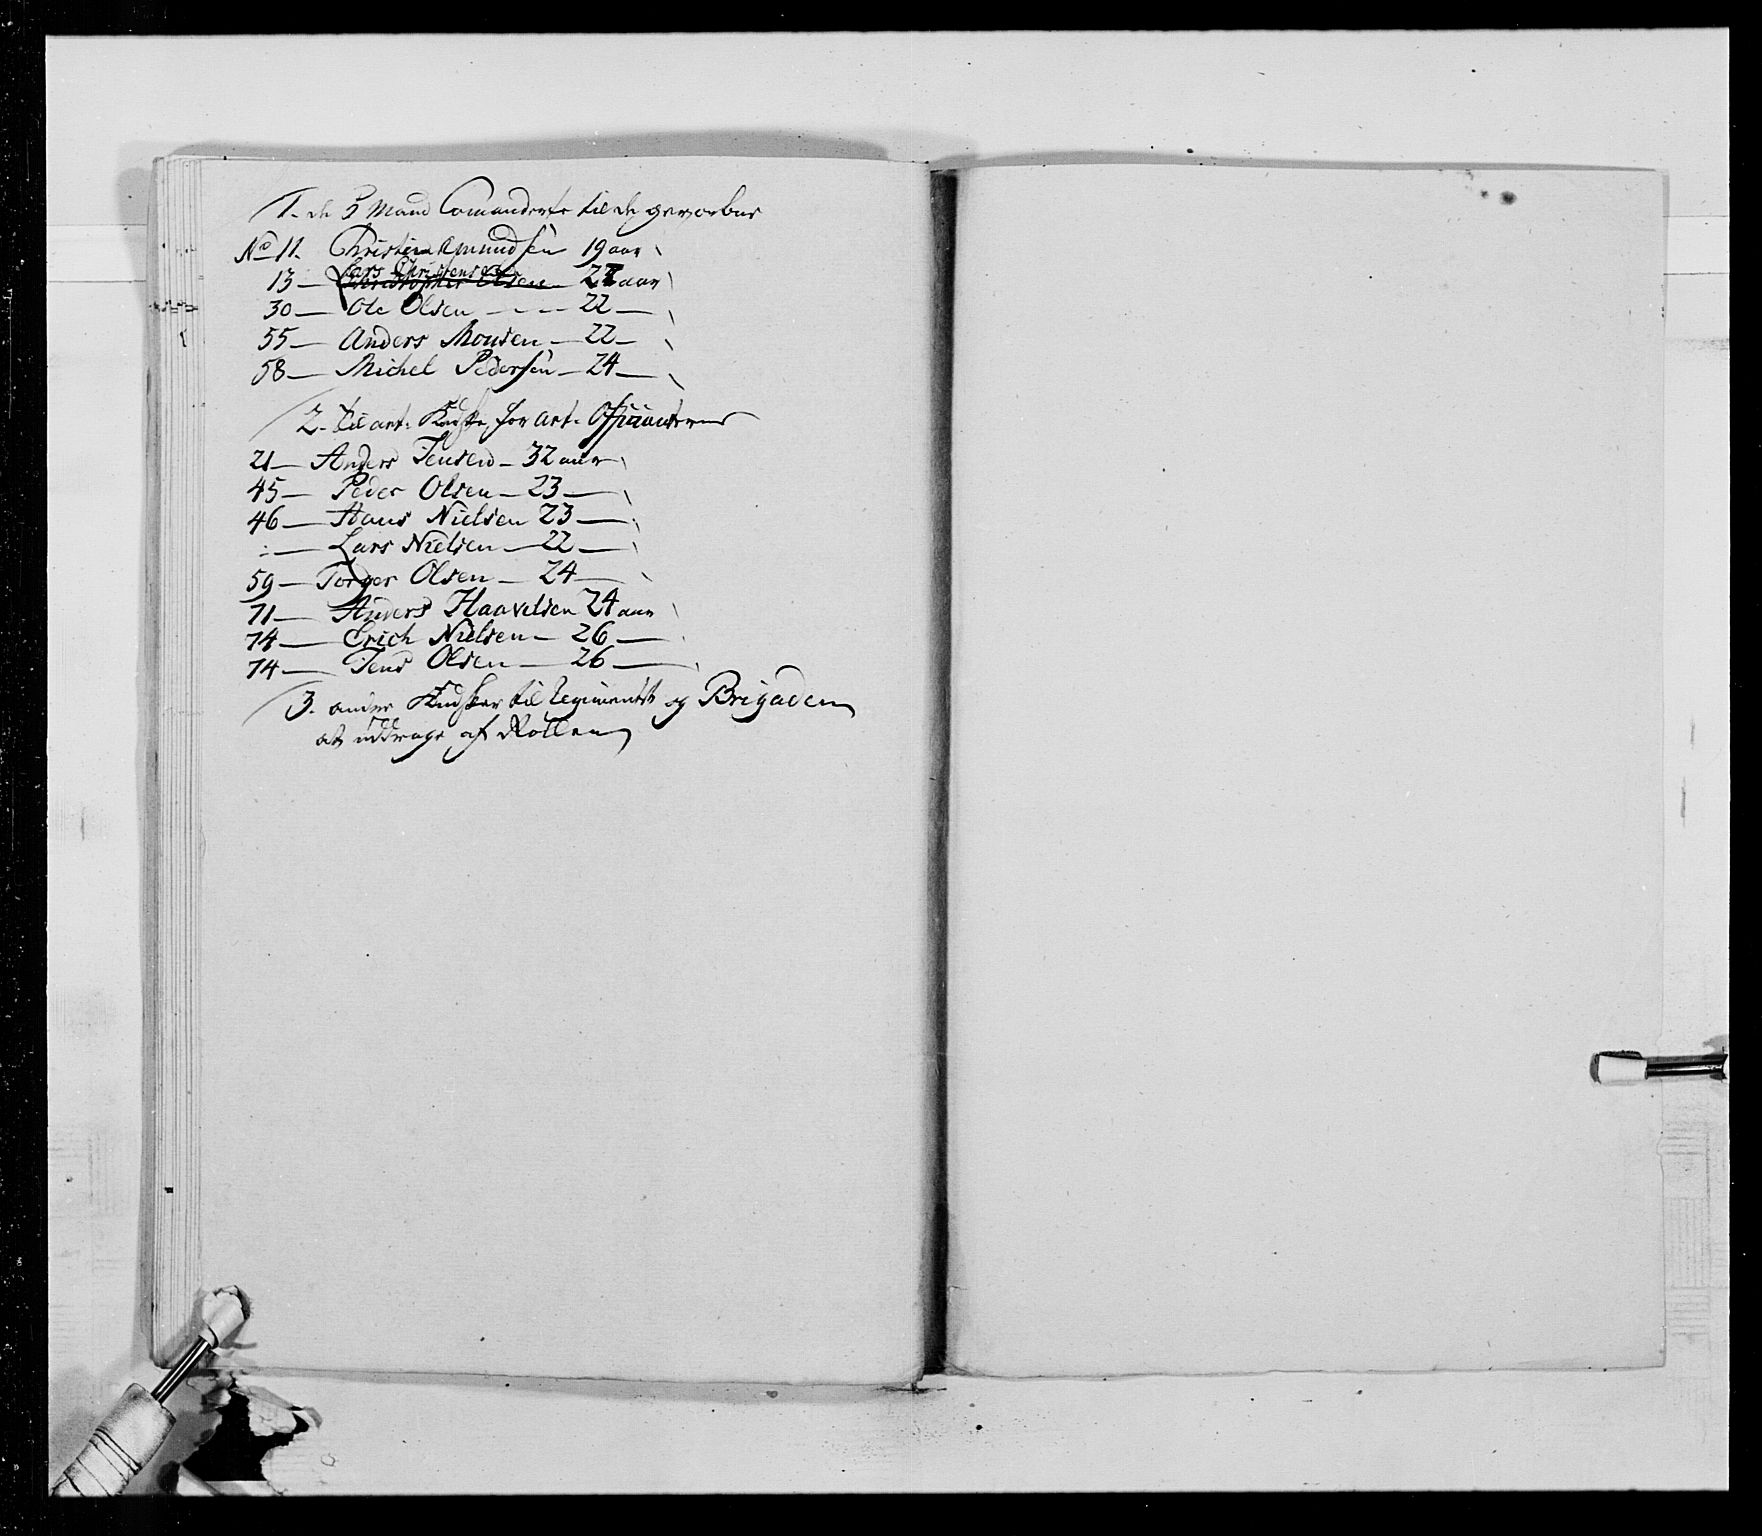 1. de 5 Mand Comanderte til de gevorbne
No 11. Christian Amundsen 19 aar
13 — Lars Christensen
Christopher Olsen — 22 aar
30 — Ole Olsen - - - 22 —
55 — Anders Monsen — 22 —
58 — Michel Pedersen — 24 —
2. til art: Kudske for art. Officiererne
21 — Anders Jensen — 32 aar
45 — Peder Olsen — 23 —
46 — Hans Nielsen 23 —
: — Lars Nielsen — 22 —
59 — Torger Olsen — 24 —
71 — Anders Haavelsen 24 aar
74 — Erich Nielsen — 26 —
74 — Jens Olsen — 26 —
3. andre Kudsker til Regimentet og Brigaden
at uddrage af Rollen